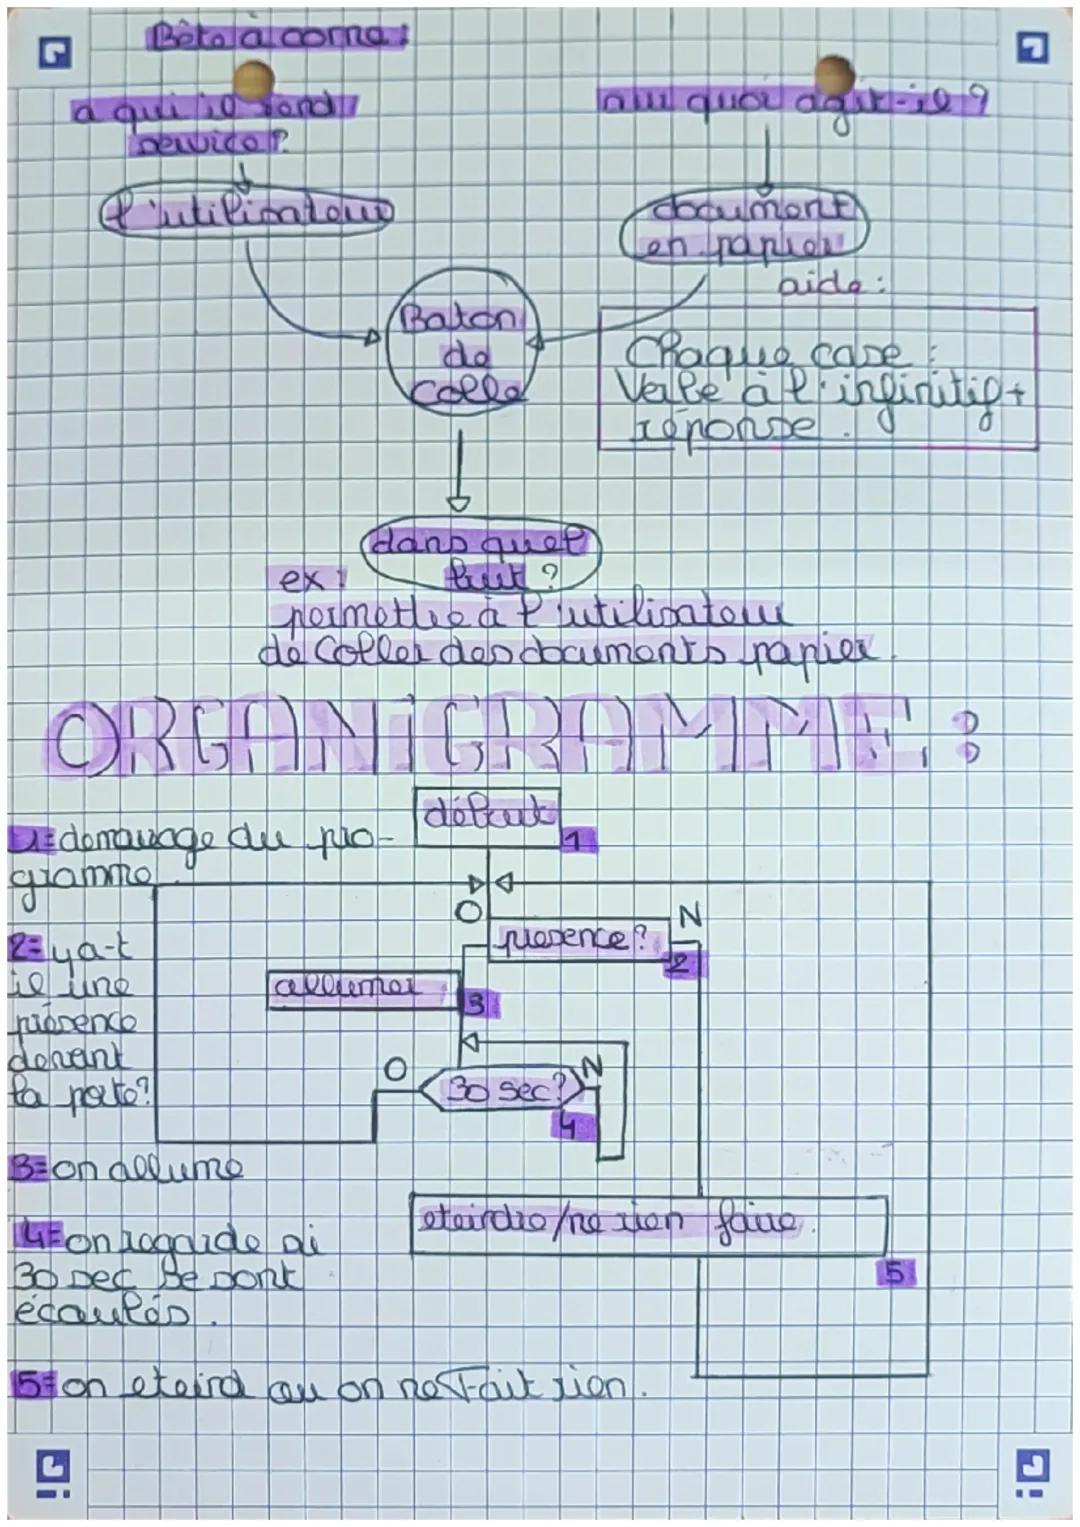 Bête à corne :
a qui il rend
service ?
sur quoi agit-il ?
l'utilisateur
document
en papier
Baton
de
Colle
aide :
Chaque case :
Verbe à l'infinitif +
réponse .
dans quel
but ?
ex :
permettre à l'utilisateur
de Coller des documents papier .
ORGANIGRAMME :
début
1
1= demarage du pro-
gramme .
O
presence ?
N
2
2= y a-t
il une
présence
devant
la porte ?
allumer
3
O
30 sec ?
N
4
3= on allume
4= on regarde si
30 sec se sont
écoulés .
eteindre / ne rien faire .
5
5= on eteind ou on ne Fait rien .